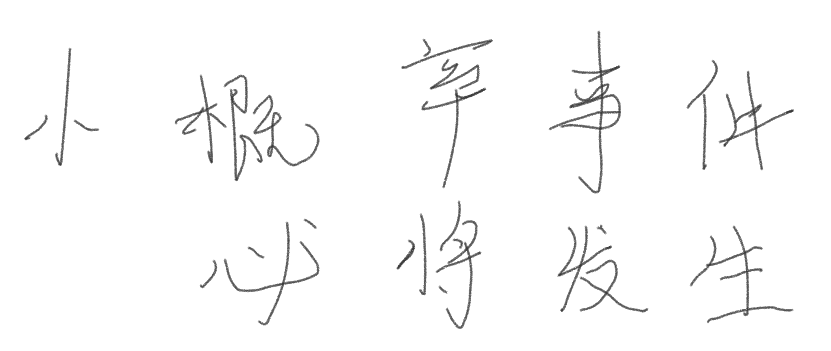 小概率事件
必将发生